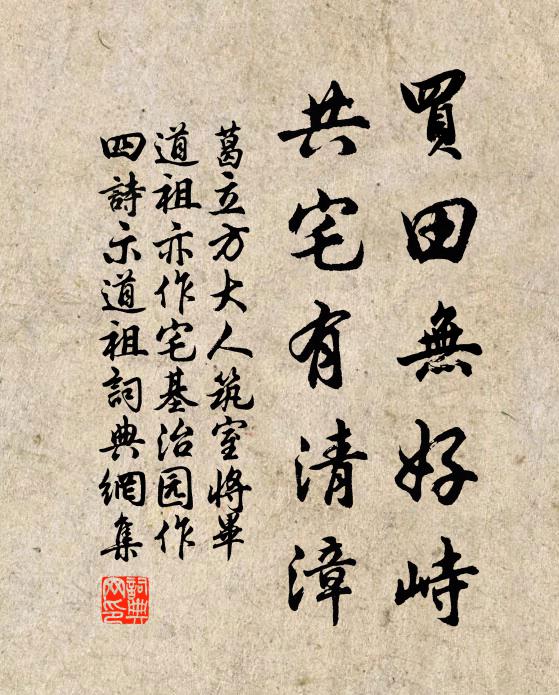 買田無好峙
共宅有清漳
葛立方大人筑室將畢
道祖亦作宅基治园作
四詩示道祖詞典網集
詞典網印